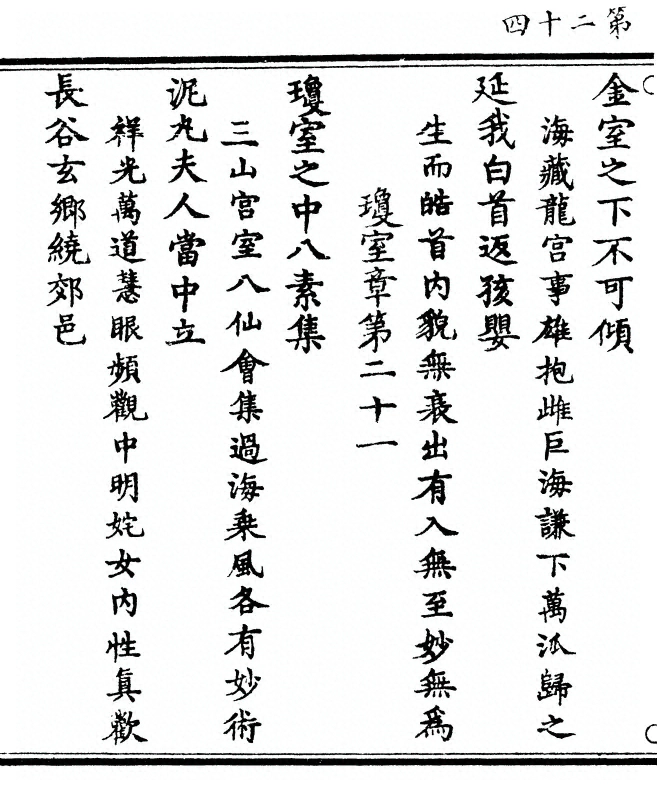 第二十四
金室之下不可傾
海藏龍宫事雄抱雌巨海謙下萬派歸之
延我白首返孩嬰
生而皓首内貌無衰出有入無至妙無為
瓊室章第二十一
瓊室之中八素集
三山宫室八仙會集過海乗風各有妙術
泥丸夫人當中立
祥光萬道慧眼頻觀中明姹女内性真歡
長谷玄鄉繞郊邑